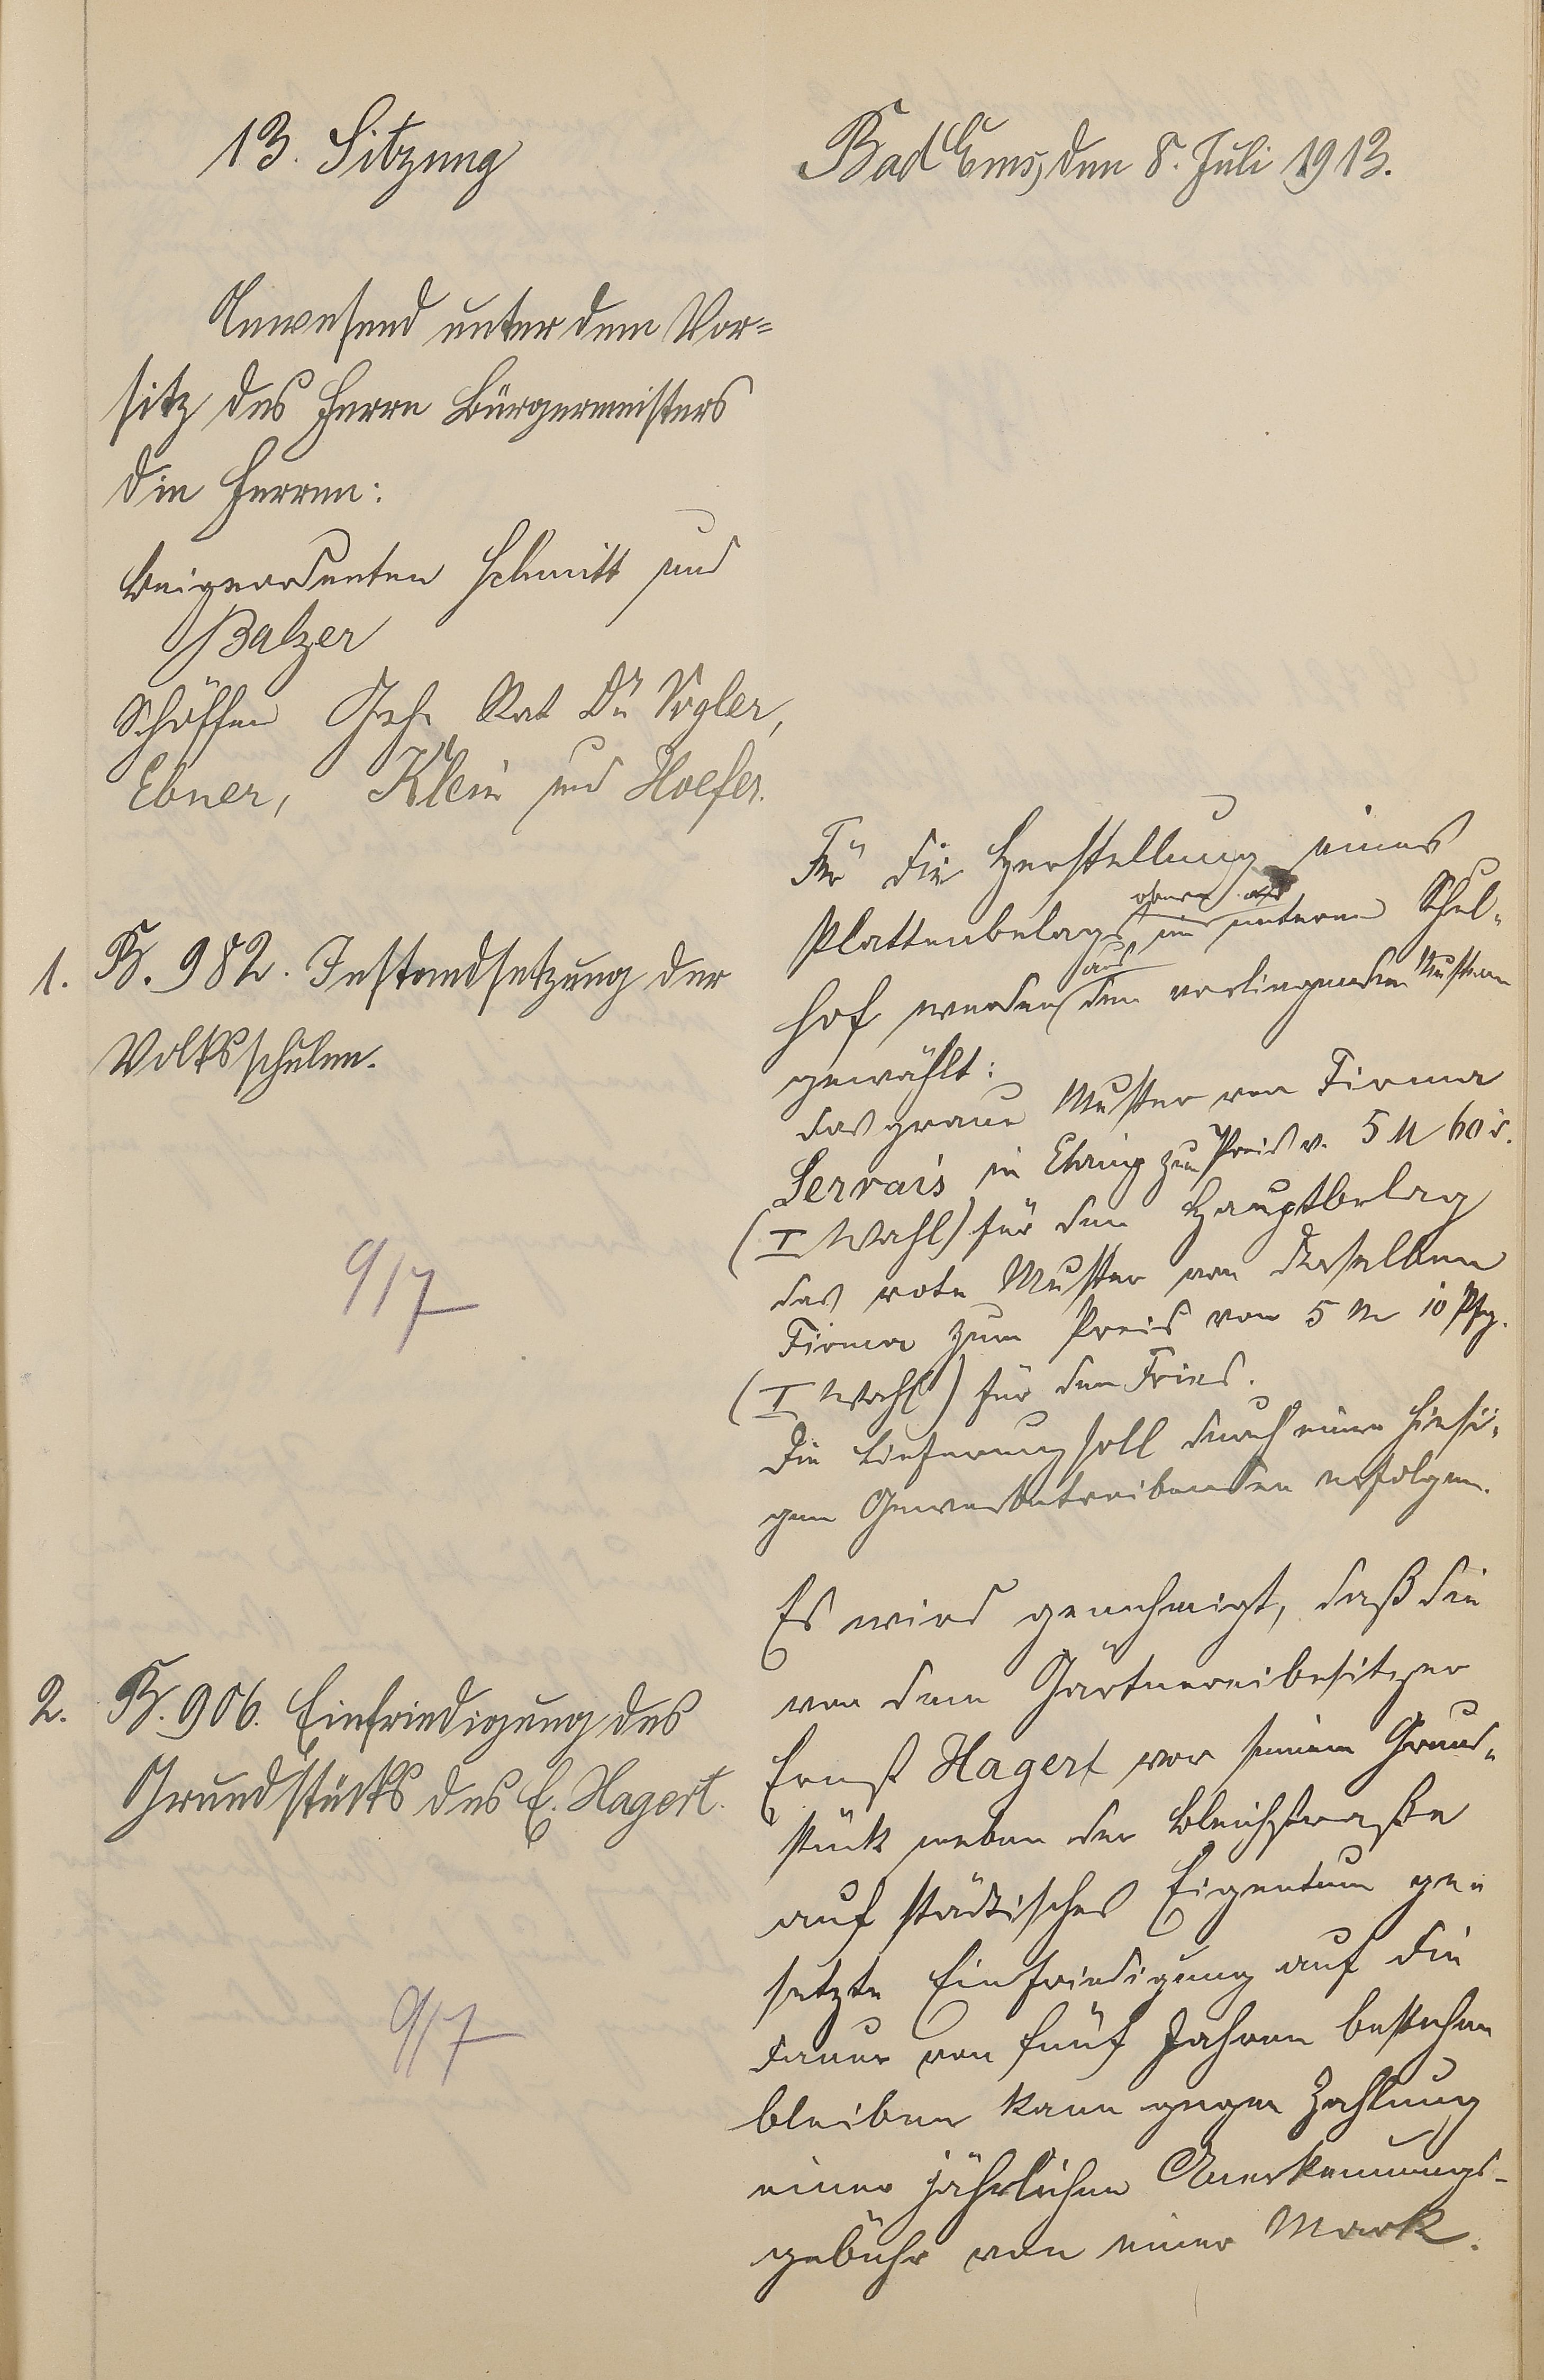 13. Sitzung
Bad Ems, den 8. Juli 1913.
Anwesend unter dem Vor=
sitz des Herrn Bürgermeisters
die Herren:
Beigeordneten Schmitt und
Balzer
Schöffen Geh. Rat Dr. Vogler,
Ebner, Klein und Hoefer.
1. B. 982. Instandsetzung der
Volksschulen.
9/7
Für die Herstellung eines
Plattenbelags im unteren Schul-
hof werden aus den vorliegenden Mustern
gewählt:
das graue Muster von Firma
Servais in Ehrang zum Preis v. 5 M 60 d.
(I Wahl) für den Hauptbelag
das rote Muster von derselben
Firma zum Preis von 5 M 10 Pfg.
(I Wahl) für den Fries.
Die Lieferung soll durch einen hiesi-
gen Gewerbetreibenden erfolgen.
2. B. 906. Einfriedigung des
Grundstücks des E. Hagert.
9/7
Es wird genehmigt, daß die
von dem Gärtnereibesitzer
Ernst Hagert vor seinem Grund-
stück neben der Bleichstraße
auf städtisches Eigentum ge-
setzte Einfriedigung auf die
Dauer von fünf Jahren bestehen
bleiben kann gegen Zahlung
einer jährlichen Anerkennungs-
gebühr von einer Mark.